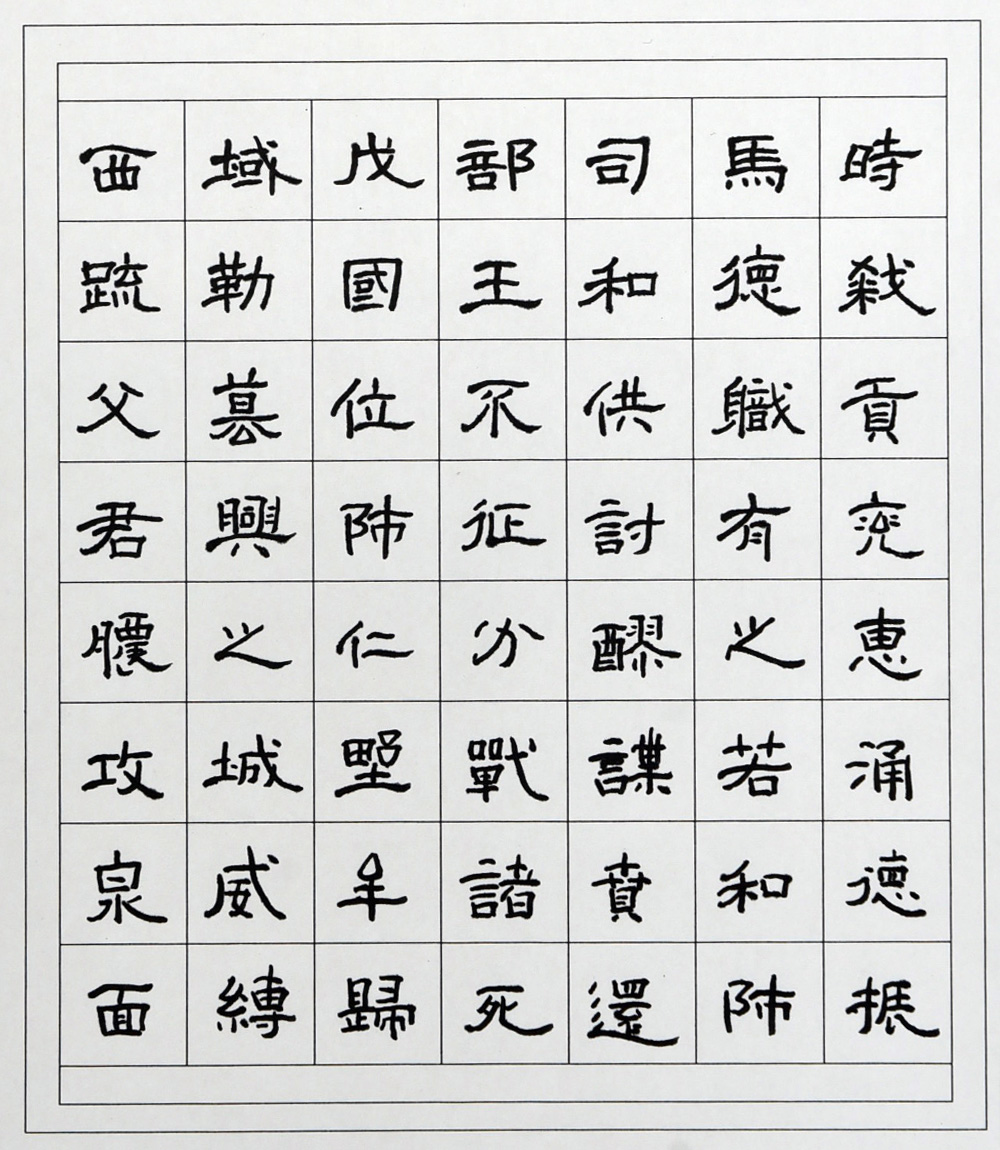 西域戊部司馬時
疏勒國王和德弒
父篡位不供職貢
君興師征討有兗
膿之仁分醪之惠
攻城野戰謀若涌
泉威牟諸賁和德
面縛歸死還師振